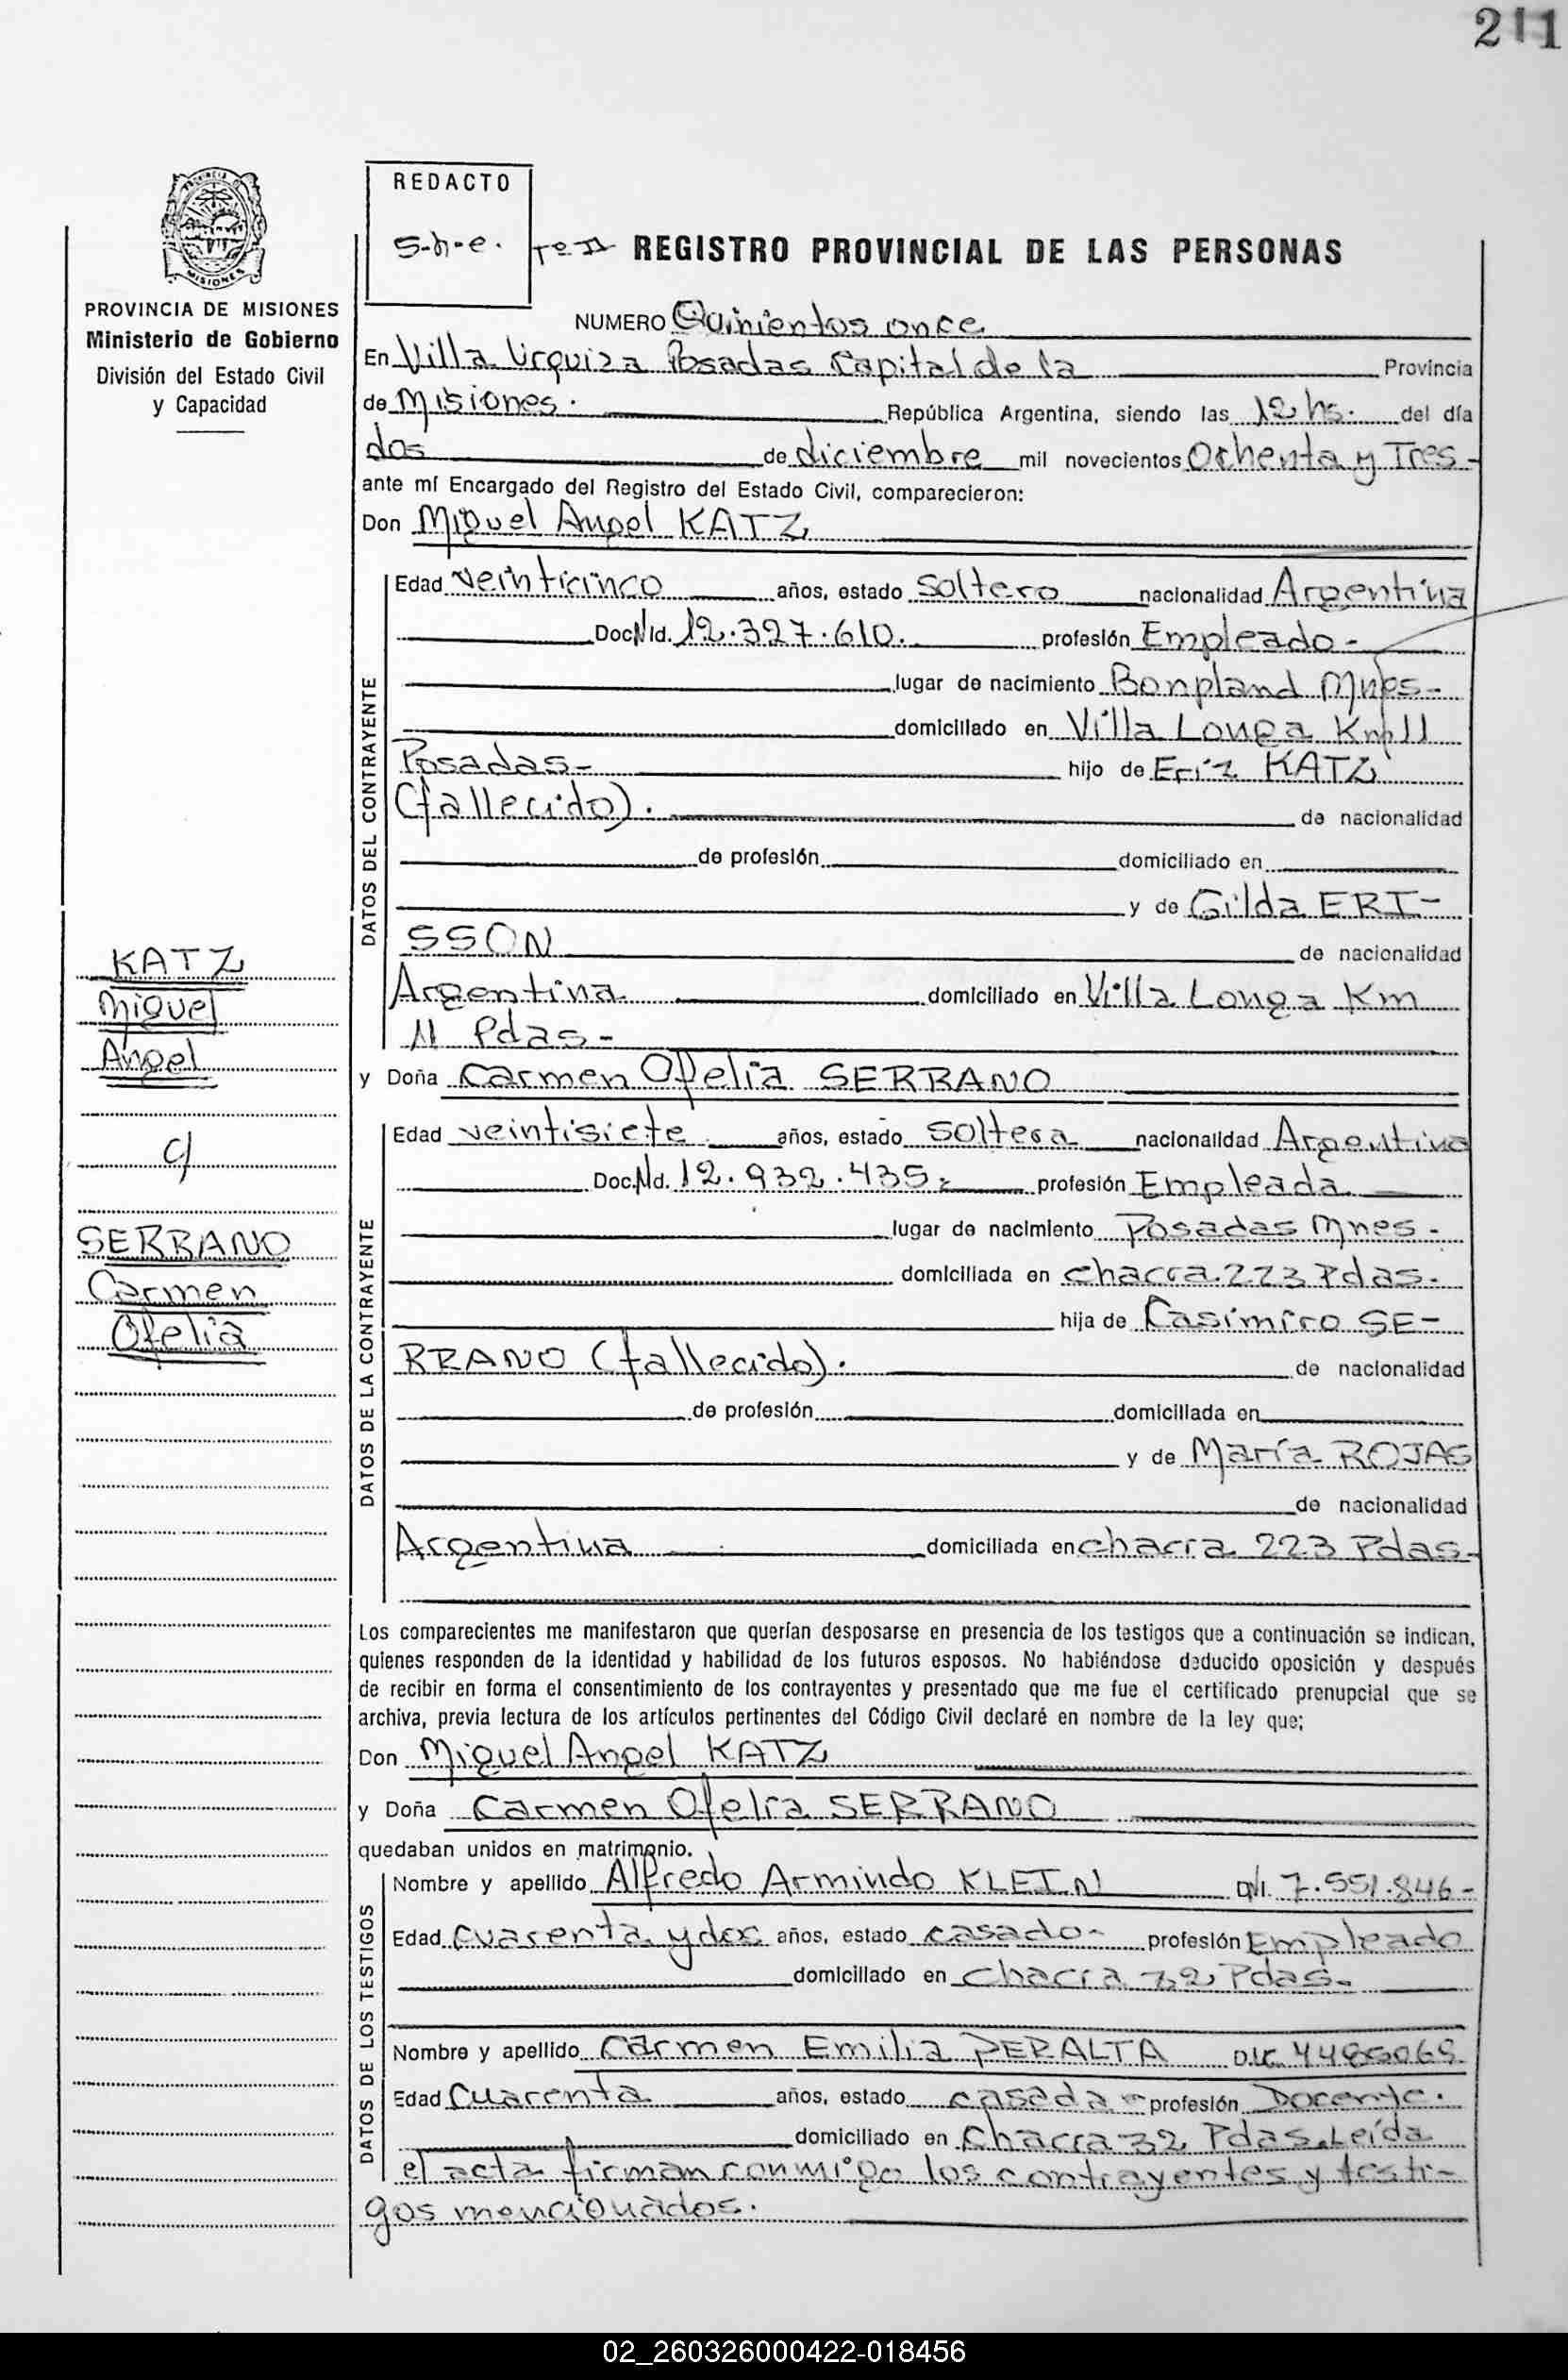 211
REDACTO
S-h-e.
Tº II REGISTRO PROVINCIAL DE LAS PERSONAS
PROVINCIA DE MISIONES
Ministerio de Gobierno
División del Estado Civil
y Capacidad
NUMERO Quinientos once
En Villa Urquiza Posadas Capital de la Provincia
de Misiones. República Argentina, siendo las 12 hs. del día
dos de diciembre mil novecientos Ochenta y Tres-
ante mí Encargado del Registro del Estado Civil, comparecieron:
Don Miguel Angel KATZ
DATOS DEL CONTRAYENTE
Edad veinticinco años, estado soltero nacionalidad Argentina
Doc.NId. 12.327.610. profesión Empleado-
lugar de nacimiento Bonpland Mnes-
domiciliado en Villa Longa Km 11
Posadas- hijo de Eriz KATZ
(fallecido). de nacionalidad
de profesión domiciliado en
y de Gilda ERI-
SSON de nacionalidad
Argentina domiciliado en Villa Longa Km
11 Pdas-
KATZ
Miguel
Angel
c/
SERRANO
Carmen
Ofelia
y Doña Carmen Ofelia SERRANO
DATOS DE LA CONTRAYENTE
Edad veintisiete años, estado soltera nacionalidad Argentina
Doc.NId. 12.932.435- profesión Empleada
lugar de nacimiento Posadas Mnes-
domiciliada en chacra 223 Pdas.
hija de Casimiro SE-
RRANO (fallecido). de nacionalidad
de profesión domiciliada en
y de María ROJAS
de nacionalidad
Argentina domiciliada en chacra 223 Pdas-
Los comparecientes me manifestaron que querían desposarse en presencia de los testigos que a continuación se indican,
quienes responden de la identidad y habilidad de los futuros esposos. No habiéndose deducido oposición y después
de recibir en forma el consentimiento de los contrayentes y presentado que me fue el certificado prenupcial que se
archiva, previa lectura de los artículos pertinentes del Código Civil declaré en nombre de la ley que;
Don Miguel Angel KATZ
y Doña Carmen Ofelia SERRANO
quedaban unidos en matrimonio.
DATOS DE LOS TESTIGOS
Nombre y apellido Alfredo Armindo KLEIN 7.551.846-
Edad cuarenta y dos años, estado casado- profesión Empleado
domiciliado en chacra 32 Pdas.
Nombre y apellido Carmen Emilia PERALTA D.I.C. 4486069
Edad Cuarenta años, estado casada- profesión Docente.
domiciliado en Chacra 32 Pdas. Leída
el acta firman conmigo los contrayentes y testi-
gos mencionados.
02_260326000422-018456